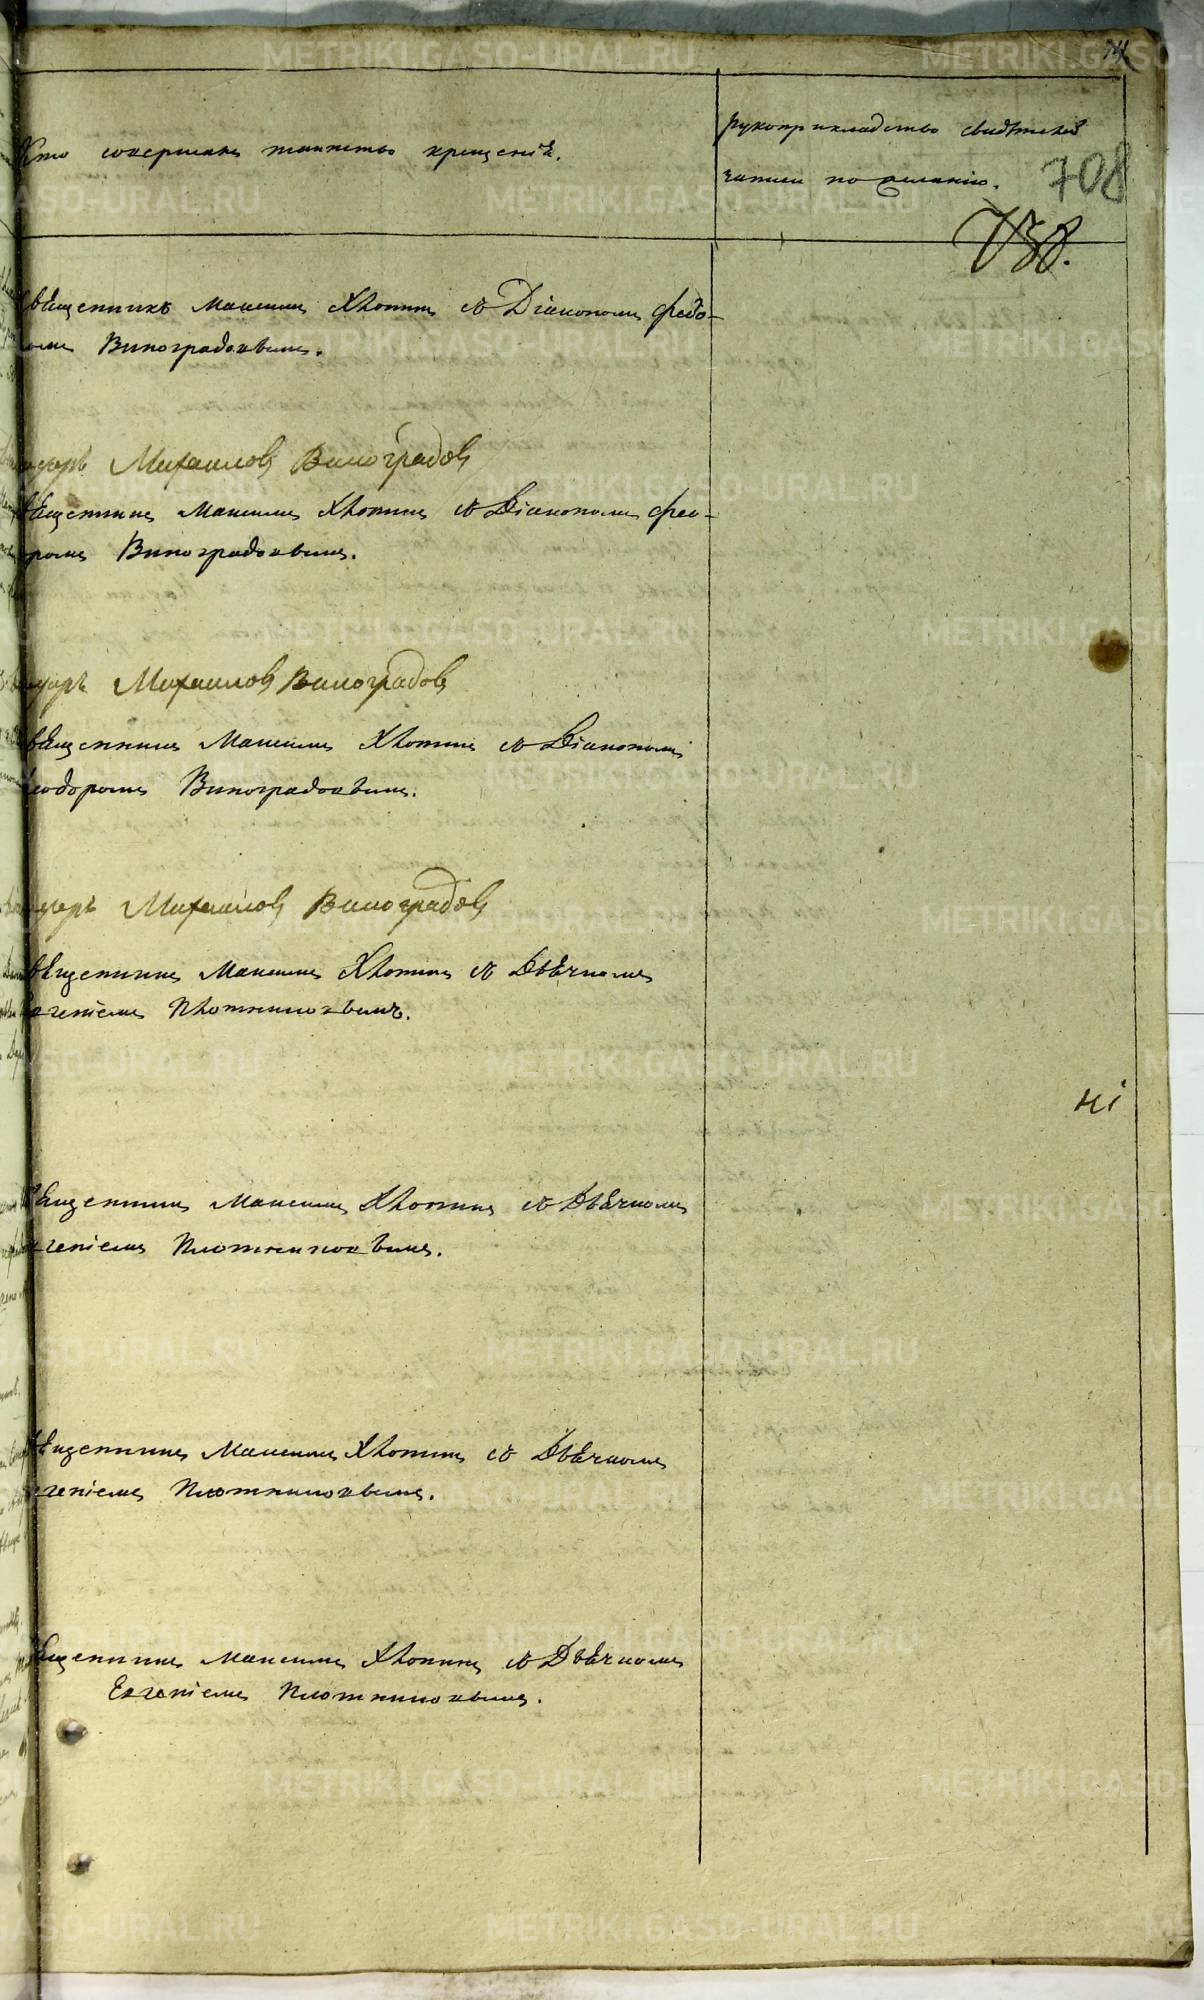 74
Кто совершалъ таинство крещенія.
рукоприкладство свидѣтелей
записи по желанію.
708
738.
священникъ Максимъ Хлопинъ съ Діакономъ Ѳедо-
ромъ Виноградовымъ.
Михаиловъ Виноградовъ
священникъ Максимъ Хлопинъ съ Діакономъ Ѳео-
доромъ Виноградовымъ.
Михаиловъ Виноградовъ
священникъ Максимъ Хлопинъ съ Діакономъ
Ѳеодоромъ Виноградовымъ.
Михаиловъ Виноградовъ
священникъ Максимъ Хлопинъ съ Дьячкомъ
Евгеніемъ Плотниковымъ.
священникъ Максимъ Хлопинъ съ Дьячкомъ
Евгеніемъ Плотниковымъ.
священникъ Максимъ Хлопинъ съ Дьячкомъ
Евгеніемъ Плотниковымъ.
священникъ Максимъ Хлопинъ съ Дьячкомъ
Евгеніемъ Плотниковымъ.
METRIKI.GASO-URAL.RU